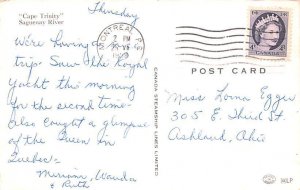 "Cape Trinity"
Saguenay River
Thursday
We're having a
trip Saw the Royal
yacht this morning
for the second time -
Also caught a glimpse
of the Queen in
Quebec -
Miriam, Wanda
& Ruth
MONTREAL, P.Q.
PM
CANADA
CANADA STEAMSHIP LINES LIMITED
POST CARD
Miss Lorna Egger
305 E. Third St
Ashland, Ohio